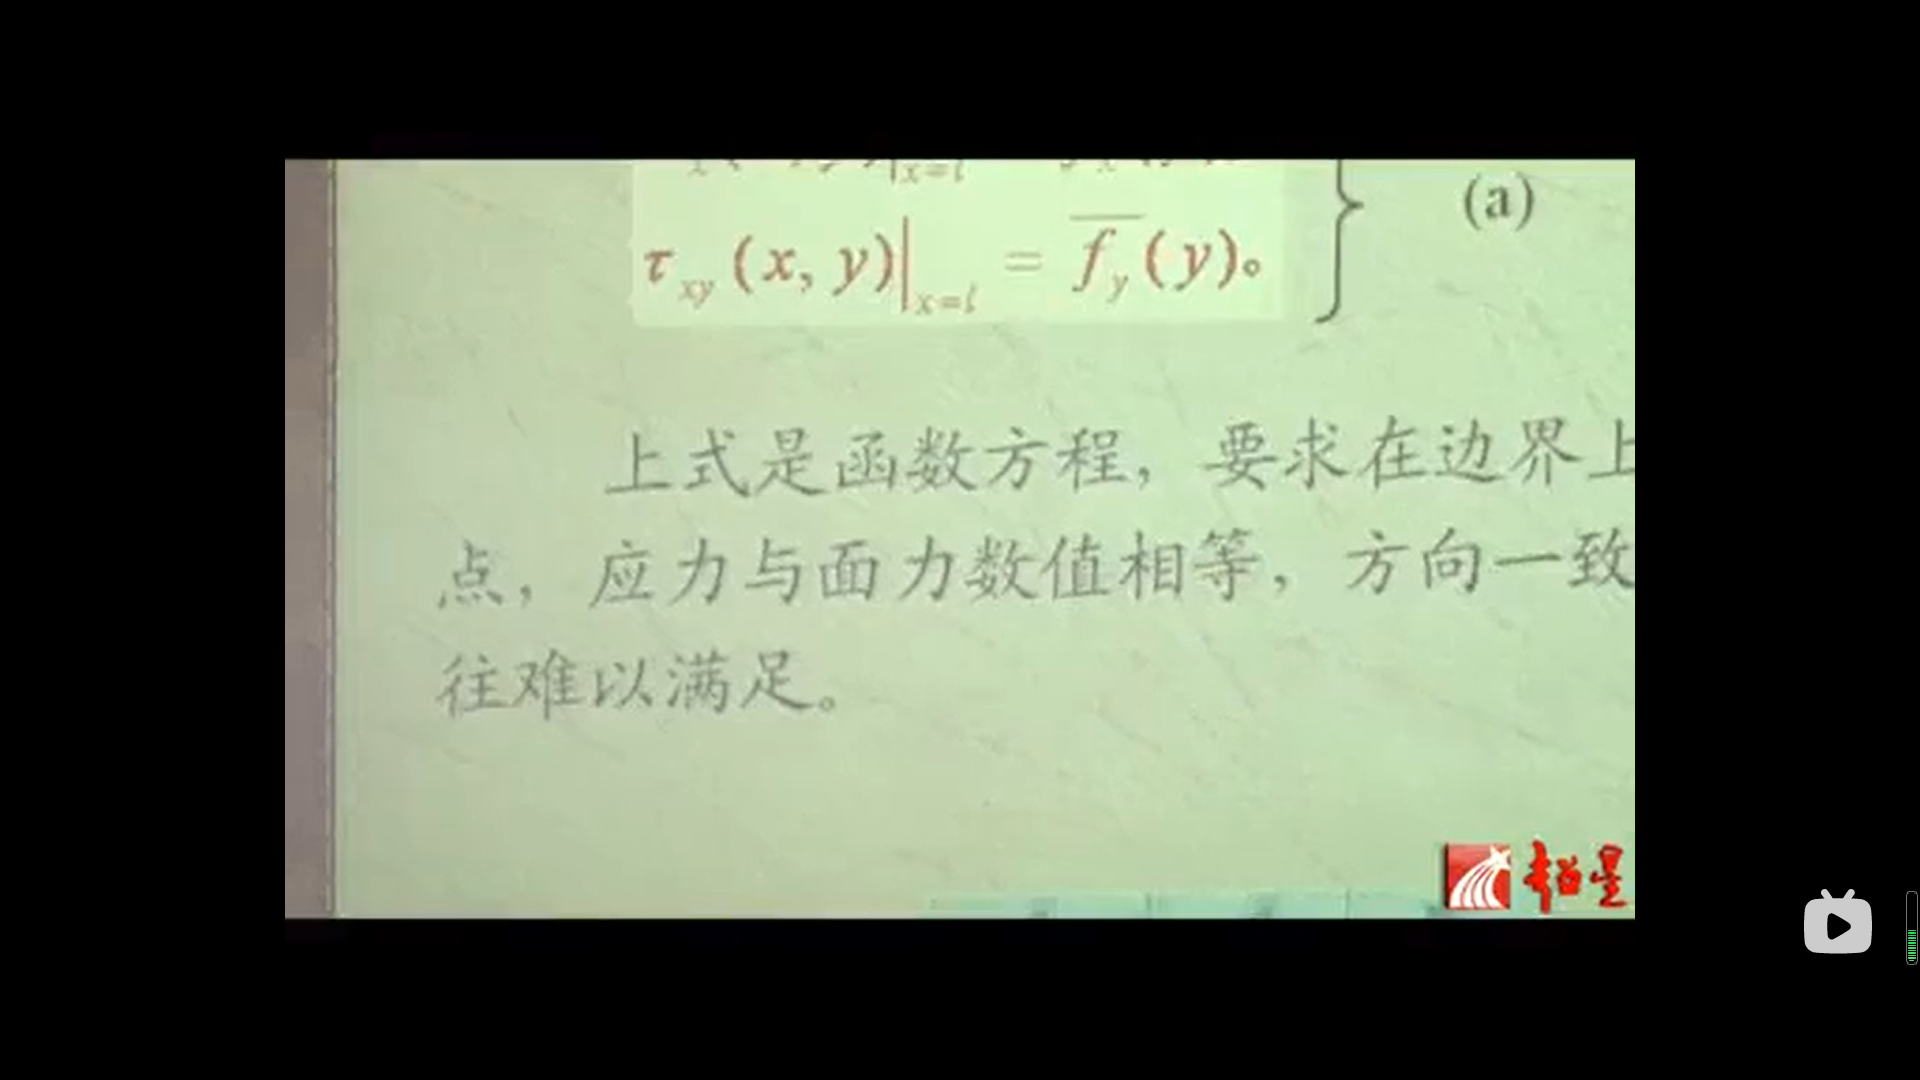 (a)
τxy(x, y)|x=l = f̅y(y)。
上式是函数方程，要求在边界上
点，应力与面力数值相等，方向一致
往难以满足。
超星